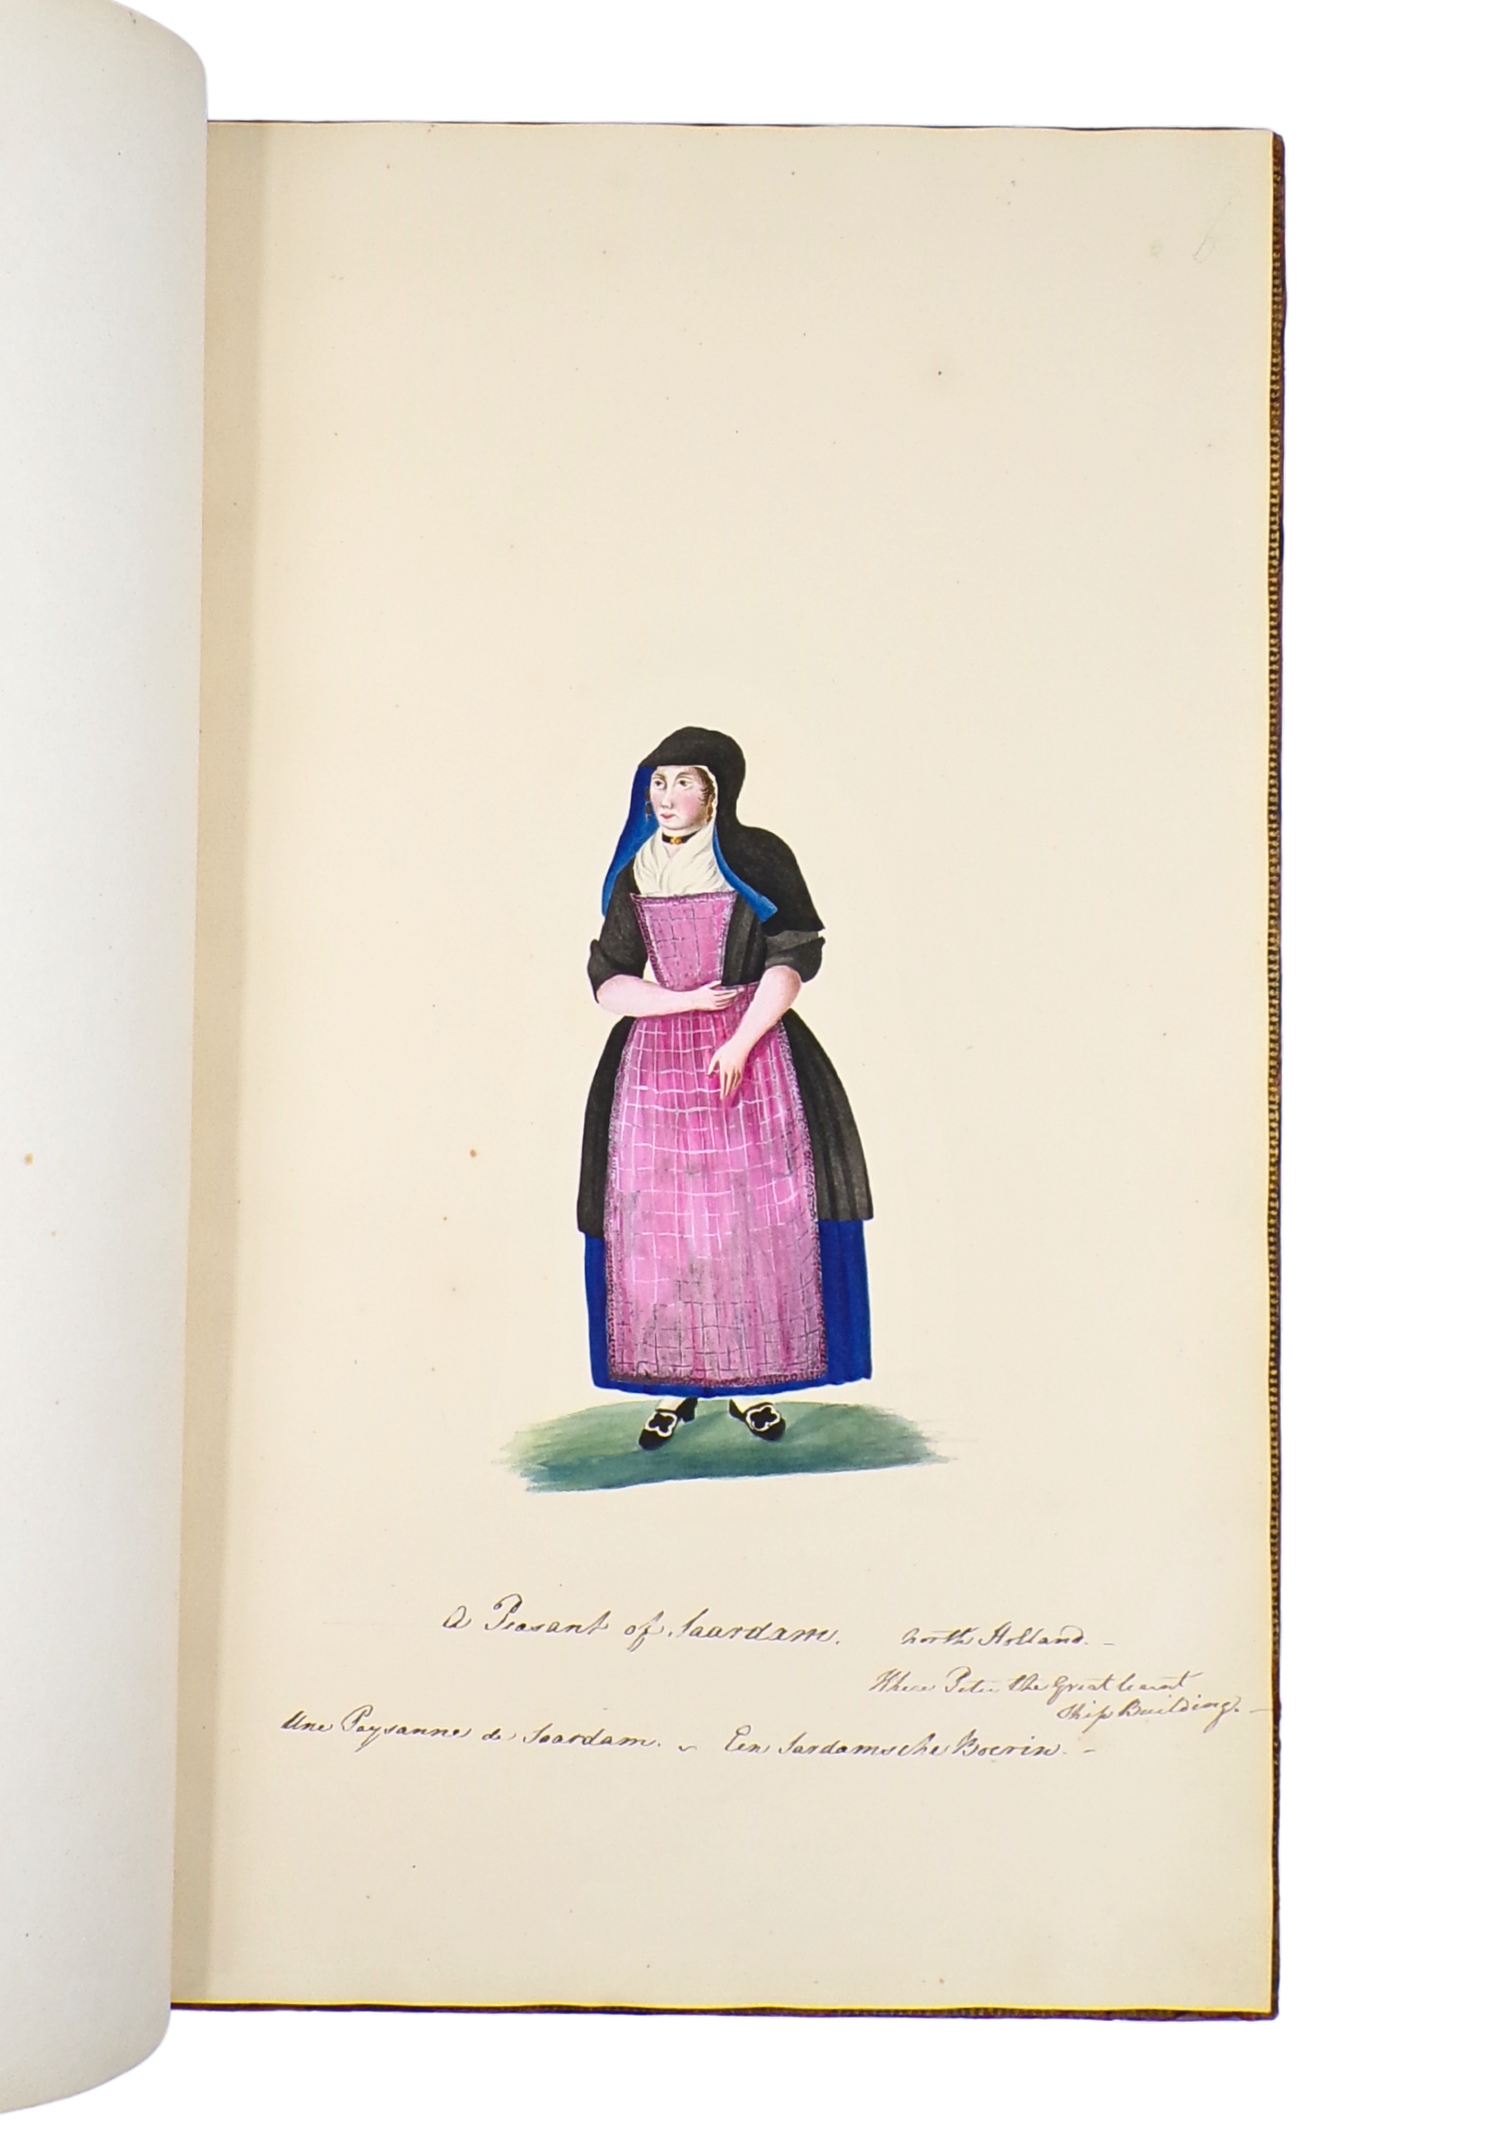 6
A Peasant of Saardam. North Holland. -
Where Peter the Great learnt
Ship Building. -
Une Paysanne de Saardam. ~ Een Sardamsche Boerin. -